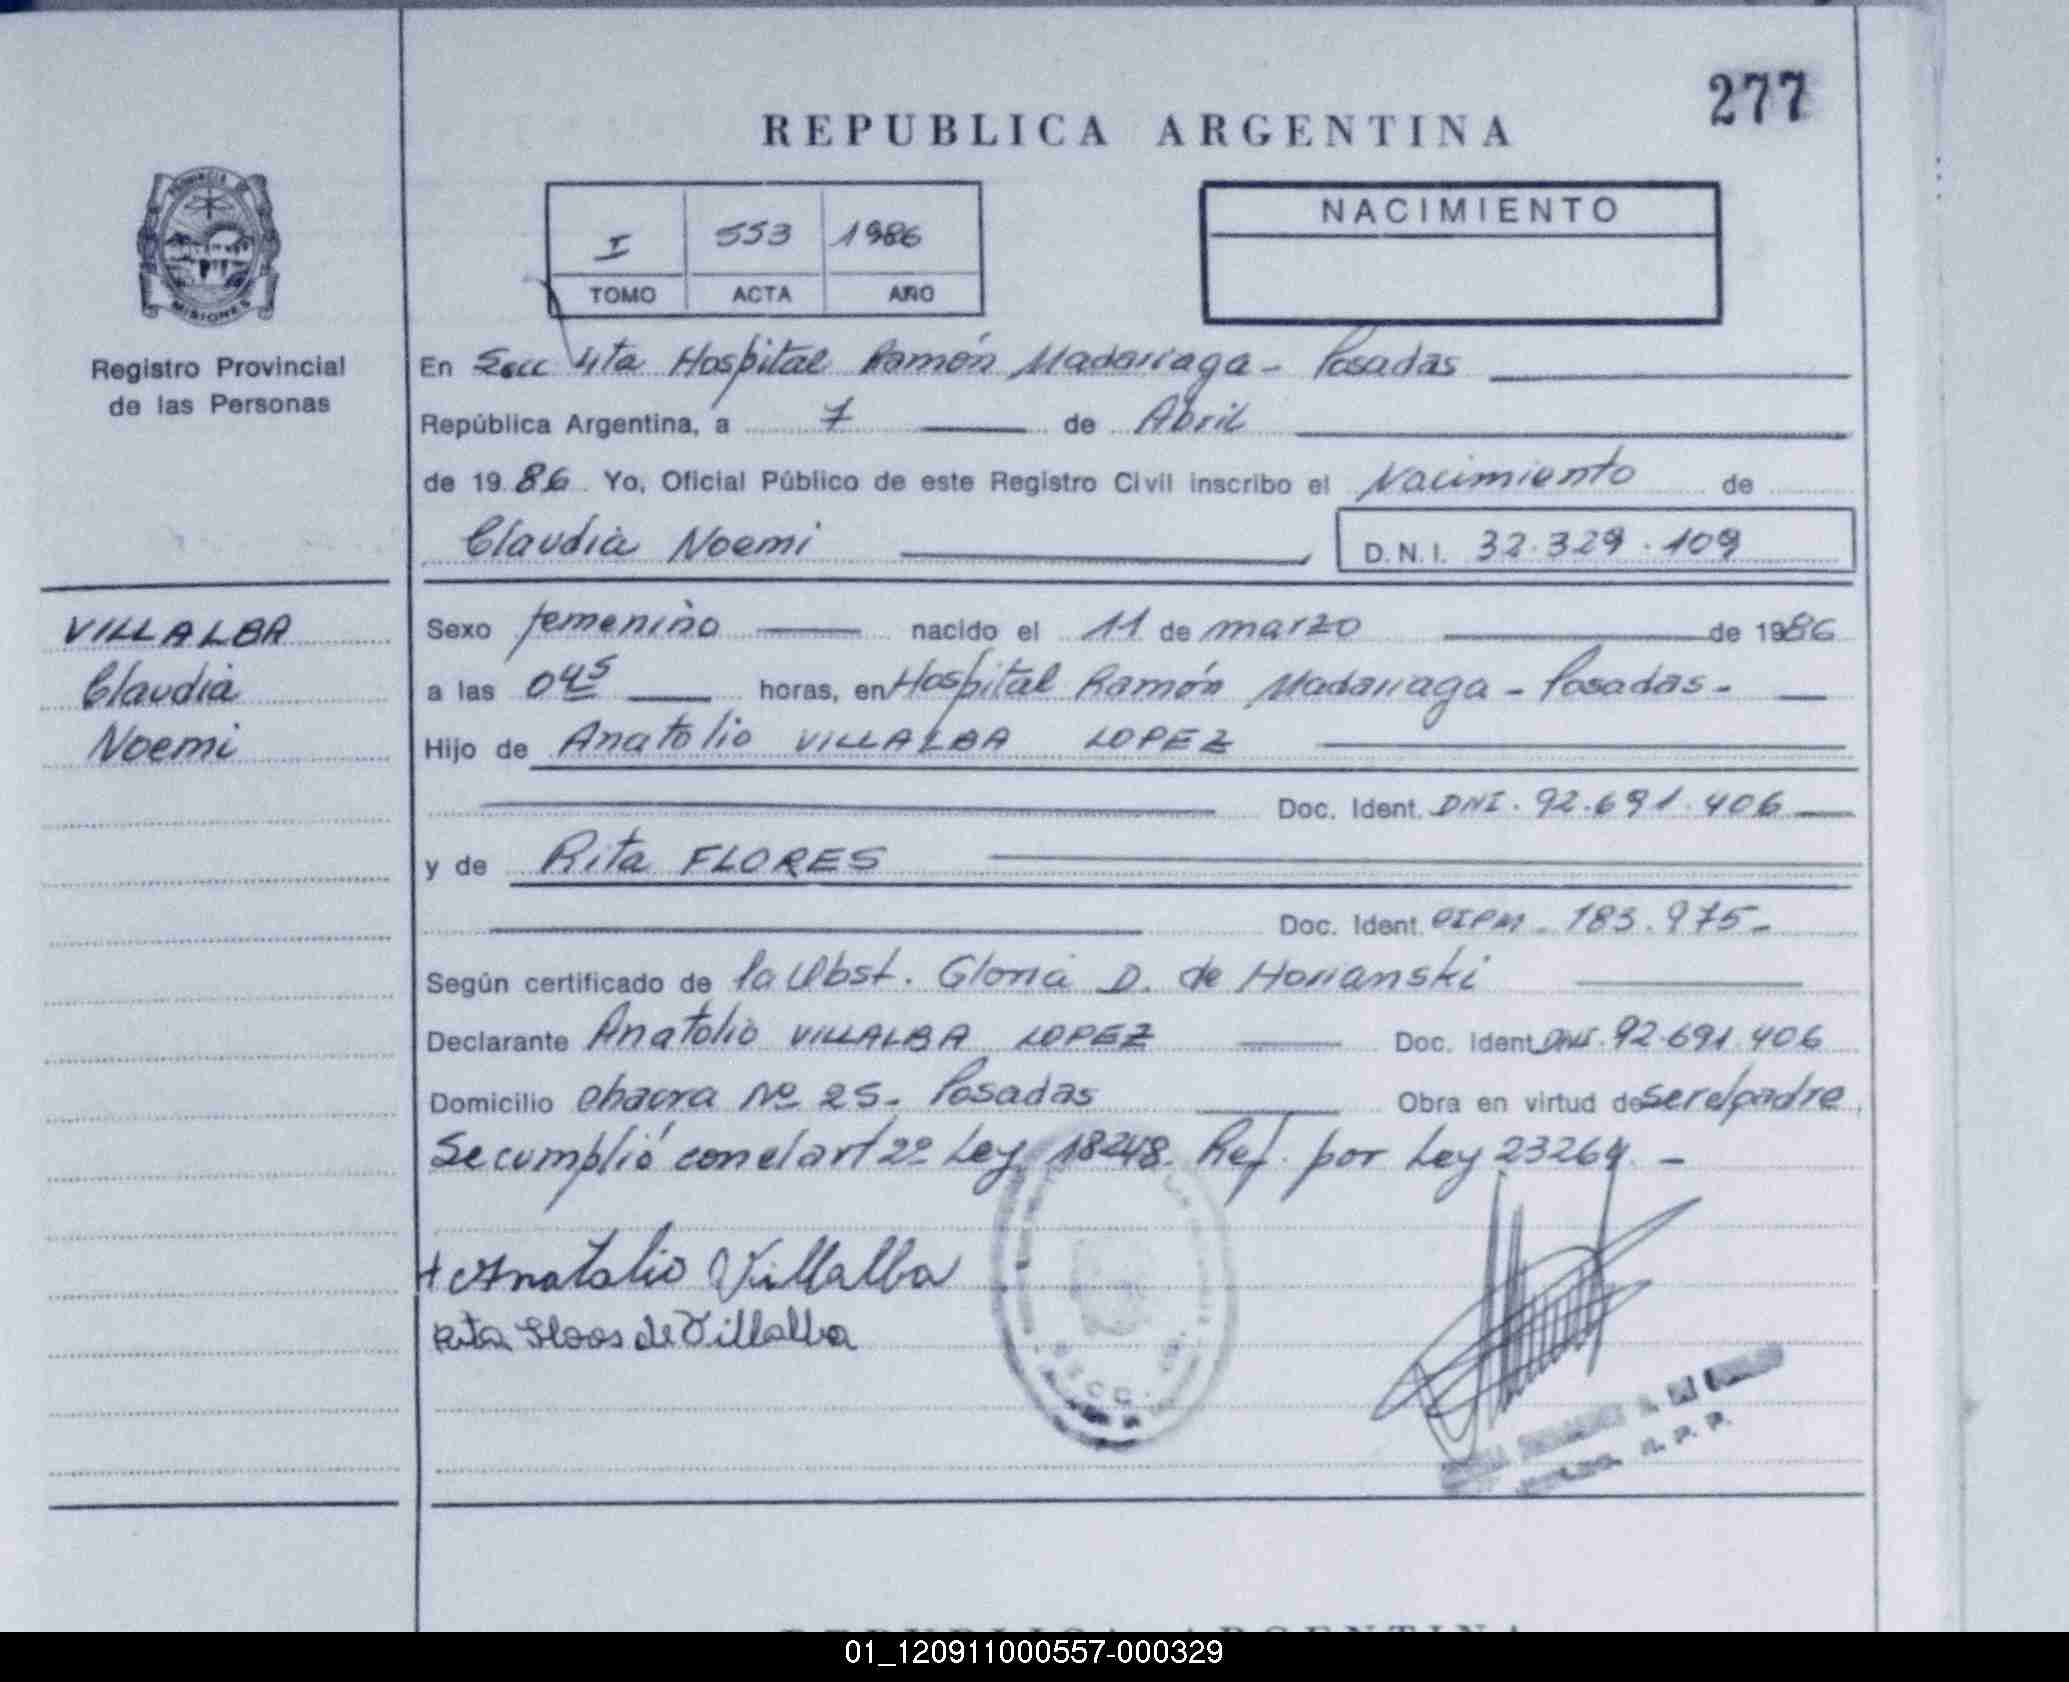 277
REPUBLICA ARGENTINA
I 553 1986
TOMO ACTA AÑO
NACIMIENTO
PROVINCIA DE
MISIONES
Registro Provincial
de las Personas
En Secc 4ta Hospital Ramón Madariaga - Posadas
República Argentina, a 7 de Abril
de 1986 Yo, Oficial Público de este Registro Civil inscribo el Nacimiento de
Claudia Noemi D.N.I. 32.329.109
VILLALBA
Claudia
Noemi
Sexo femenino nacido el 11 de marzo de 1986
a las 045 horas, en Hospital Ramón Madariaga - Posadas -
Hijo de Anatolio VILLALBA LOPEZ
Doc. Ident. DNI. 92.691.406
y de Rita FLORES
Doc. Ident. CIPM - 183.975 -
Según certificado de la Obst. Gloria D. de Horianski
Declarante Anatolio VILLALBA LOPEZ Doc. Ident DNI. 92.691.406
Domicilio chacra Nº 25 - Posadas Obra en virtud de ser el padre
Se cumplió con el art 2º Ley 18248 Ref. por Ley 23264. -
Anatolio Villalba
Rita Flores de Villalba
R. P. P.
REPUBLICA ARGENTINA
01_120911000557-000329